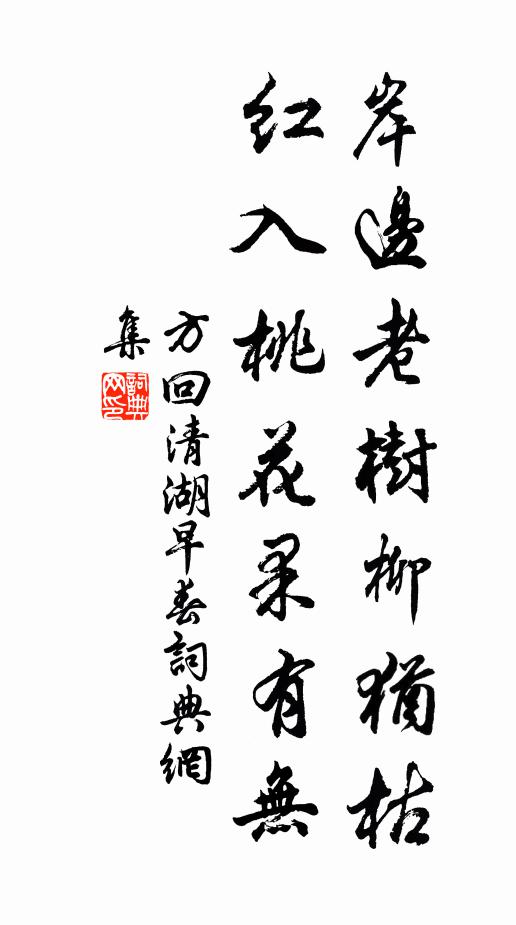 岸邊老樹柳猶枯
紅入桃花果有無
方回清湖早春詞典網
集
詞典网印